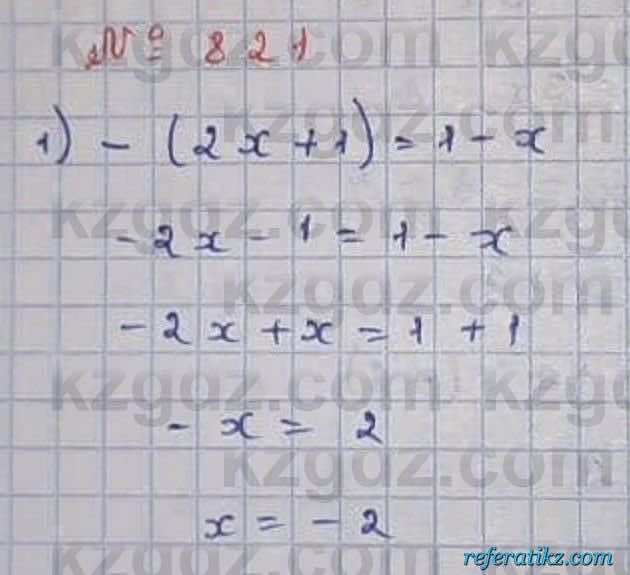 № 821
1) - (2x + 1) = 1 - x
- 2x - 1 = 1 - x
- 2x + x = 1 + 1
- x = 2
x = - 2
kzgdz.com
referatikz.com